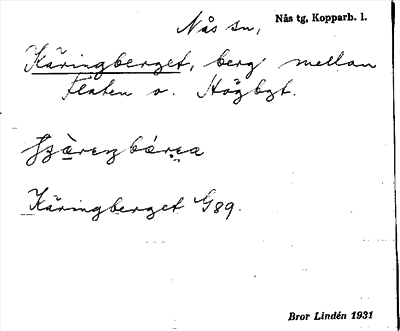 Nås sn, Nås tg, Kopparb. l.
Käringberget, berg mellan
Flaten o. Högbgt.
Käringberget G89.
Bror Lindén 1931